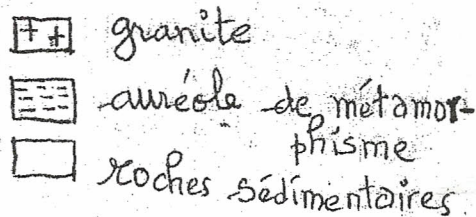 granite
auréole de métamor-
phisme
roches sédimentaires